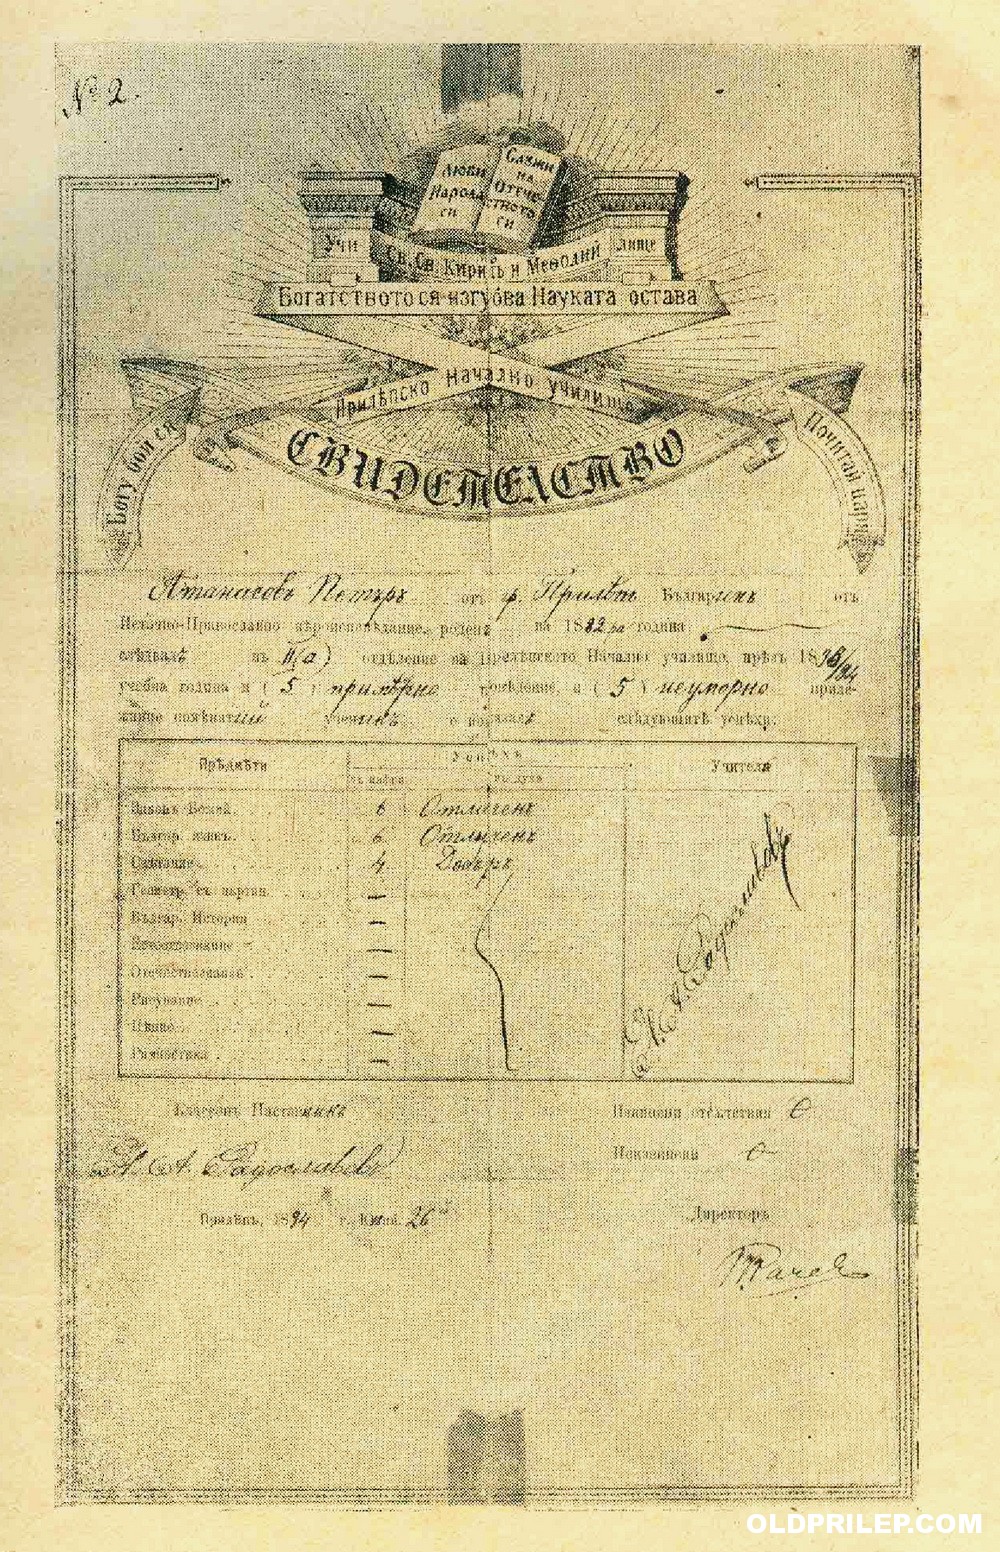 № 2.
Люби
Народа
си
Служи
на
Отече-
ството
си
Учи
лище
Св. Св. Кирилъ и Меѳодий
Богатството ся изгубва Науката остава
Прилѣпско Начално училище
Богу бой ся
Почитай царя
СВИДЕТЕЛСТВО
Атанасовъ Петъръ отъ гр. Прилѣпъ Българинъ отъ
Источно-Православно вѣроисповѣдание, роденъ на 1882 ра година
слѣдвалъ въ II(а) отдѣление на Прилѣпското Начално училище, прѣзъ 1893/94
учебна година и (5) примѣрно поведение, и (5) неуморно приле-
жание поменатий ученикъ е показалъ слѣдующитѣ успѣхи:
Прѣдмѣти
Успѣхъ
Учителя
съ цифри
съ думи
Законъ Божий 6 Отличенъ
Българ. языкъ. 6 Отличенъ
Смятание 4 Добъръ
Геометр. съ чертан. —
Българ. История —
Отечествознание —
Рисувание —
Пѣние —
Гимнастика —
Н. А. Радославовъ
Класенъ Наставникъ
Н. А. Радославовъ
Извинени отсѫтствия 0
Неизвинени 0
Прилѣпъ, 1894 г. Юний 26
Директоръ
OLDPRILEP.COM